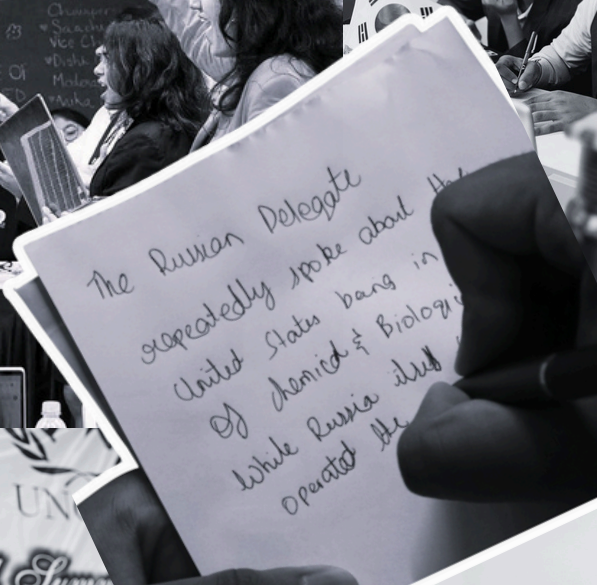 The Russian Delegate
repeatedly spoke about the
United States being in
Of chemical & Biologi
While Russia itself
operated the
UN
Chairper
Vice Ch
Disha
Of